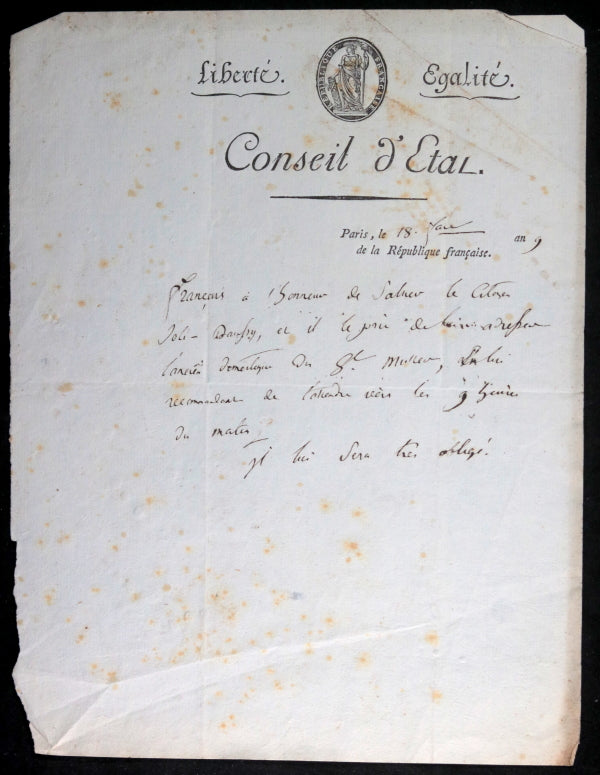 Liberté. Egalité.
RÉPUBLIQUE FRANÇAISE
Conseil d'Etat.
Paris, le 18. an 9
de la République française.
François à l'honneur de Saluer le Citoyen
et il le prie de lui adresser
l'ancien domestique du Gl
recommandant de l'attendre vers les 9 heures
du matin
il lui Sera très obligé.